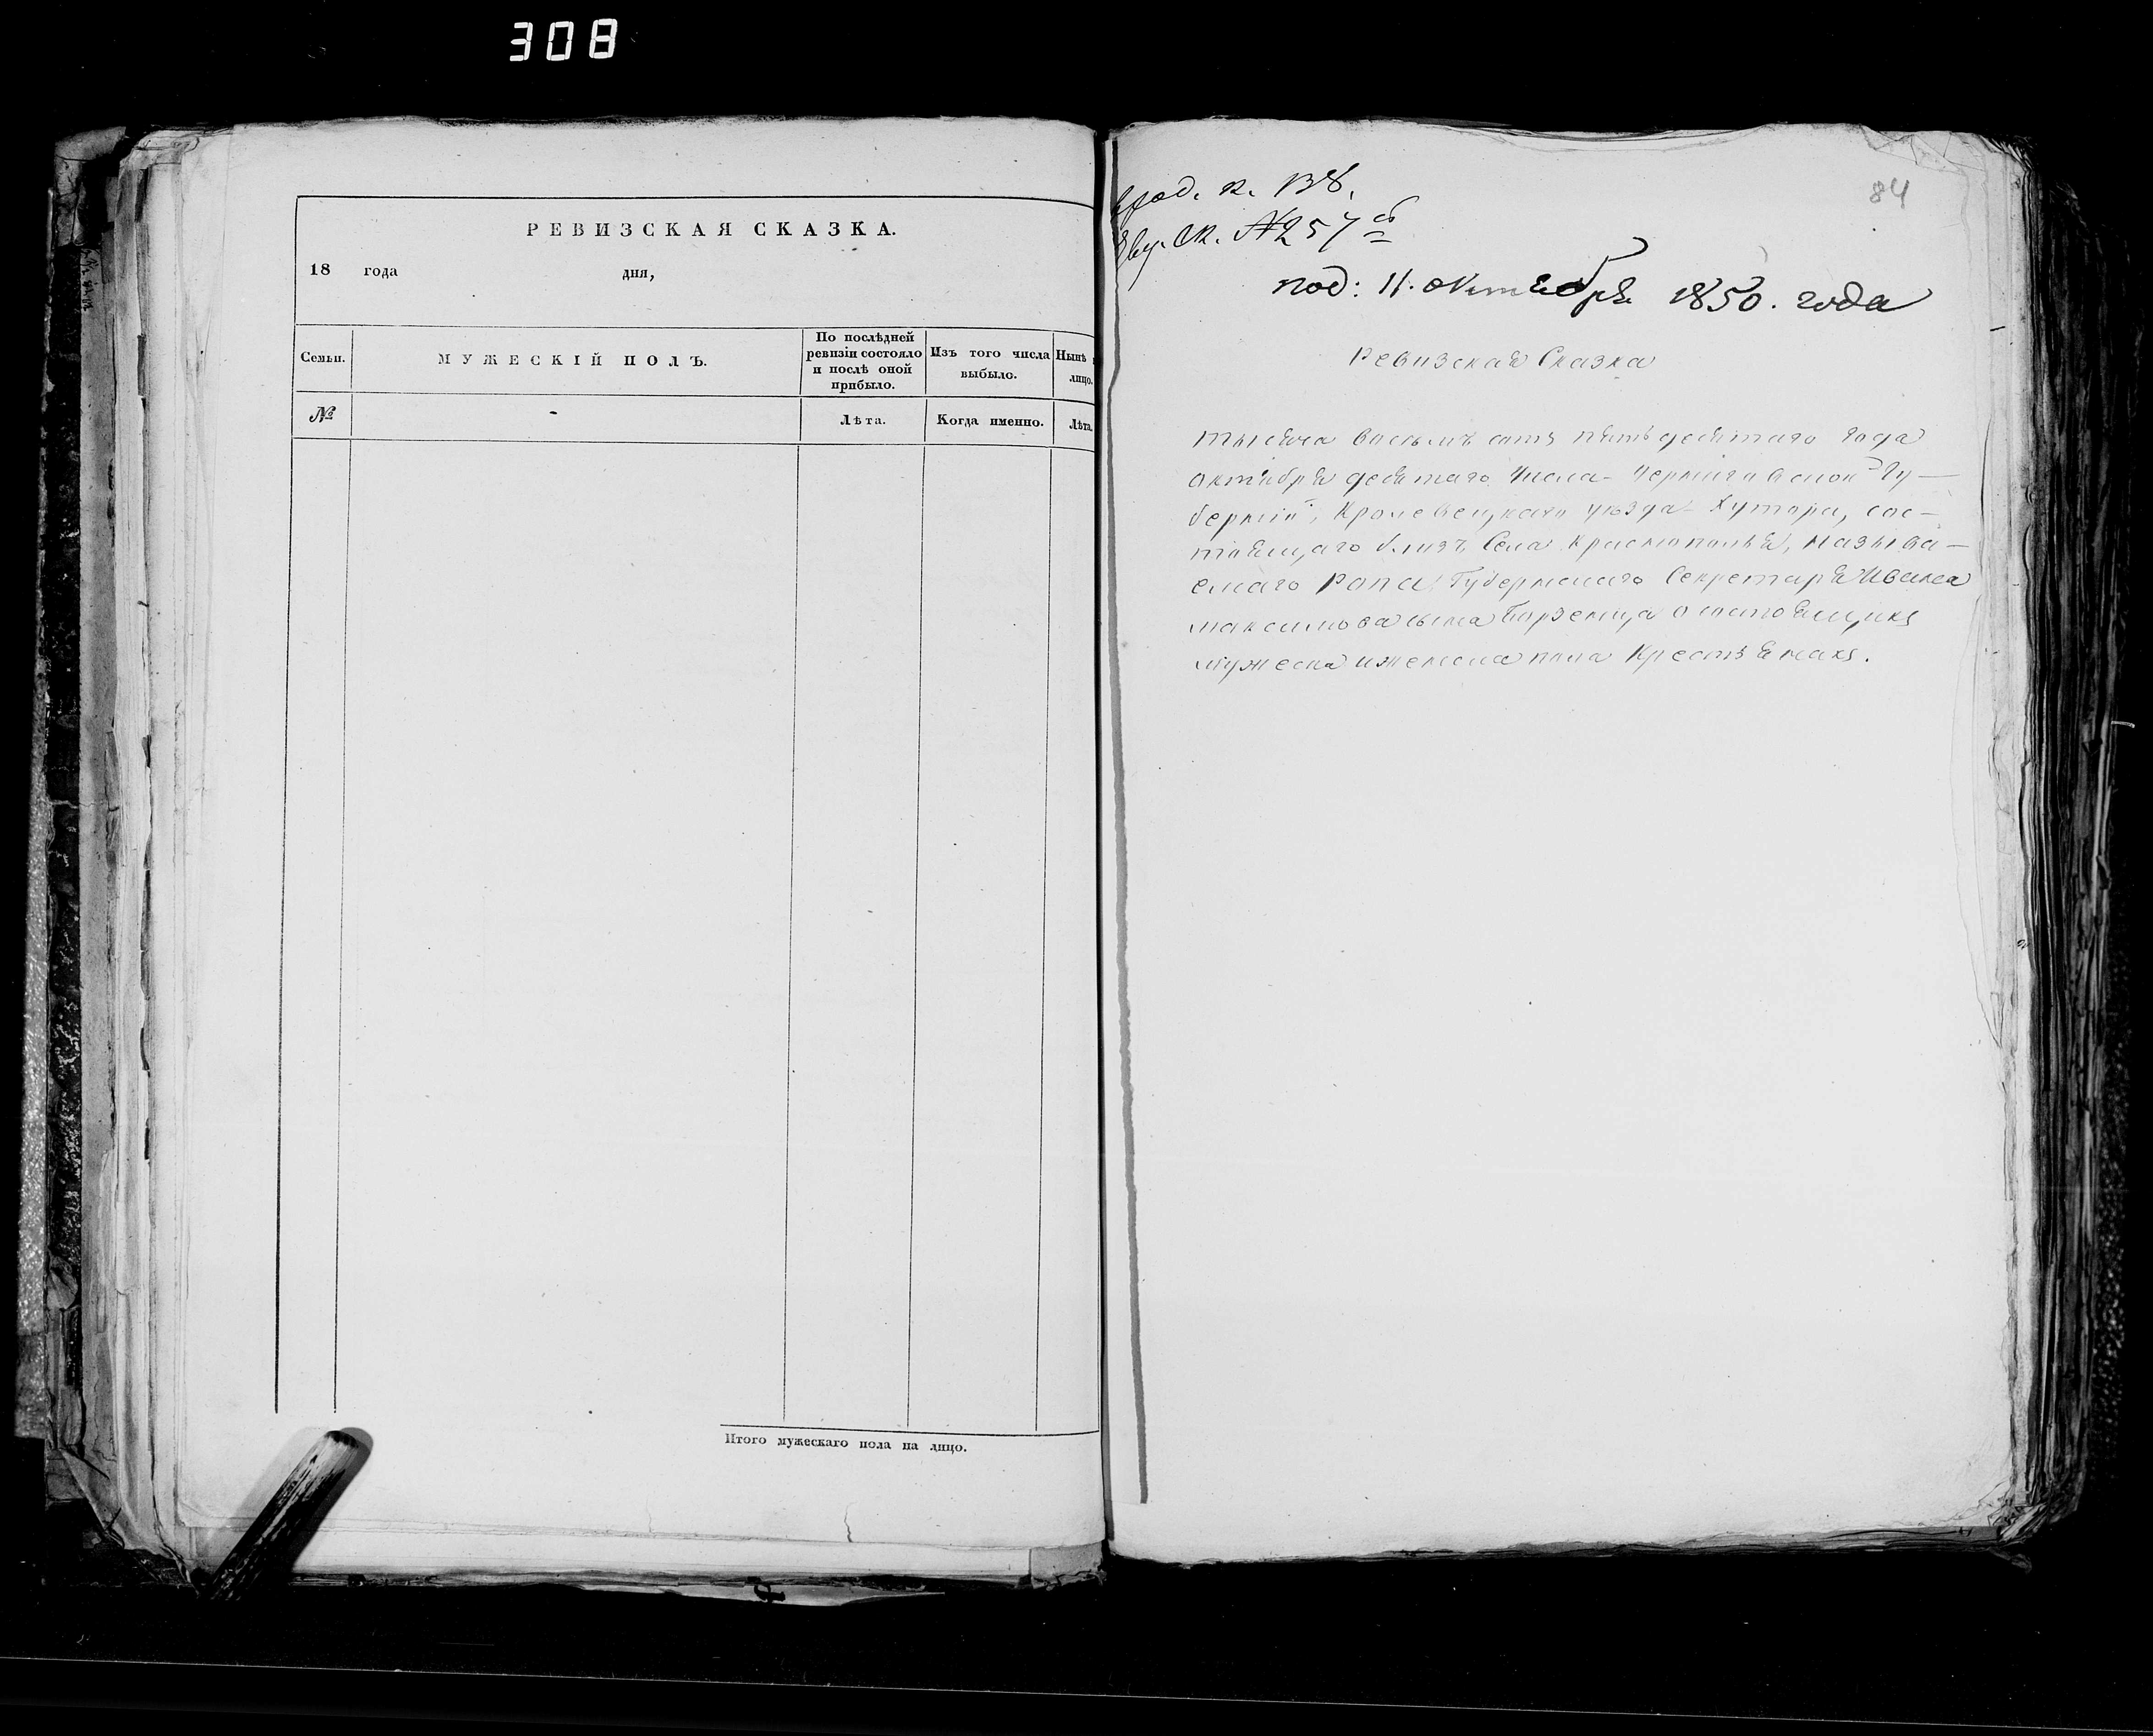 308
РЕВИЗСКАЯ СКАЗКА.
18 года дня,
Семьи.
МУЖЕСКІЙ ПОЛЪ.
По послѣдней
ревизіи состояло
и послѣ оной
прибыло.
Изъ того числа
выбыло.
Нынѣ
лицо.
№
Лѣта.
Когда именно.
Лѣта.
Итого мужескаго пола на лицо.
84
к. 138.
№ 257
под: 11. октября 1850. года
Ревизская Сказка
тысяча восемъ сотъ пятьдесятаго года
октября десятаго числа Черниговской Гу-
берніи, Кролевецкаго уезда Хутора, сос-
тоящаго близъ Села Краснополья, называ-
емаго Ропа, Губернскаго Секретаря Ивана
Максимова сына Борзенца о состоящихъ
мужеска и женска пола Крестьянахъ.